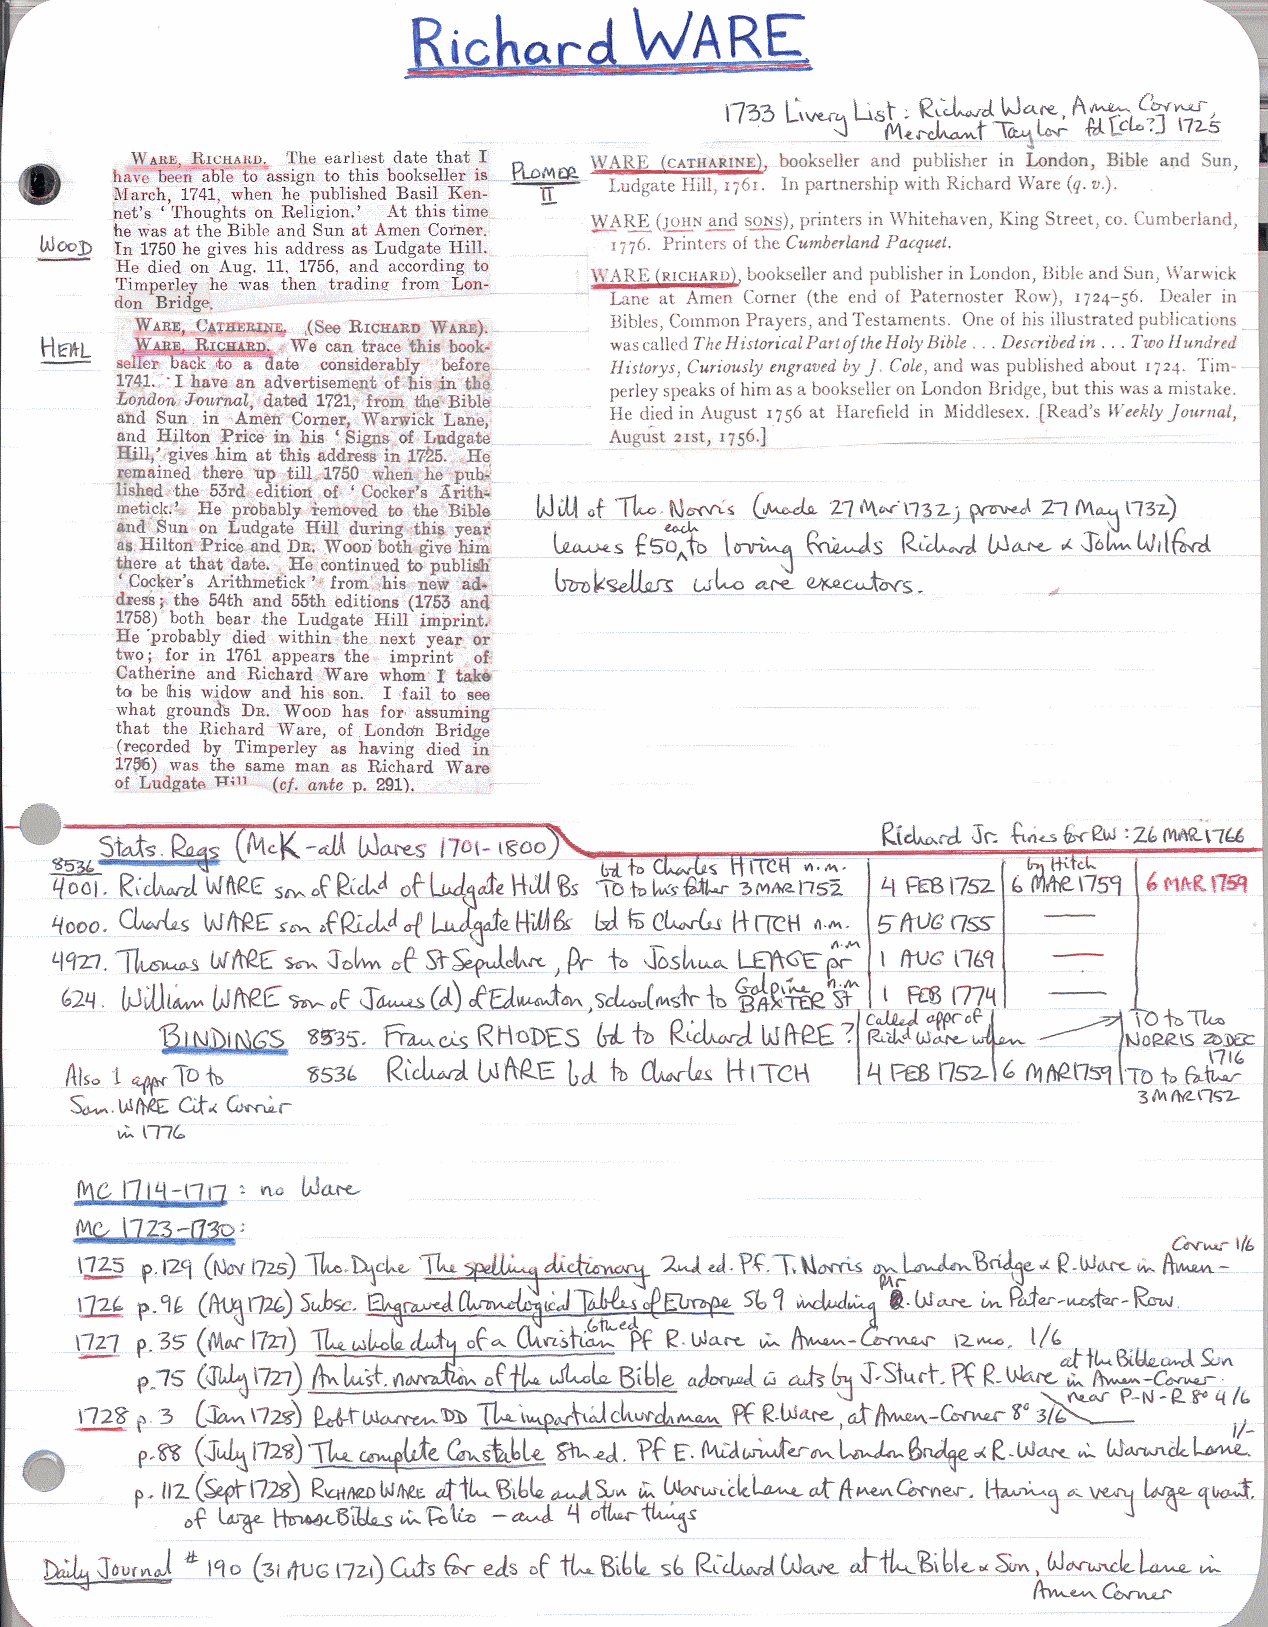 Richard WARE
1733 Livery List: Richard Ware, Amen Corner,
Merchant Taylor fd [clo?] 1725
WOOD
WARE, RICHARD. The earliest date that I
have been able to assign to this bookseller is
March, 1741, when he published Basil Ken-
net's 'Thoughts on Religion.' At this time
he was at the Bible and Sun at Amen Corner.
In 1750 he gives his address as Ludgate Hill.
He died on Aug. 11, 1756, and according to
Timperley he was then trading from Lon-
don Bridge.
HEAL
WARE, CATHERINE. (See RICHARD WARE).
WARE, RICHARD. We can trace this book-
seller back to a date considerably before
1741. I have an advertisement of his in the
London Journal, dated 1721, from the Bible
and Sun in Amen Corner, Warwick Lane,
and Hilton Price in his 'Signs of Ludgate
Hill,' gives him at this address in 1725. He
remained there up till 1750 when he pub-
lished the 53rd edition of 'Cocker's Arith-
metick.' He probably removed to the Bible
and Sun on Ludgate Hill during this year
as Hilton Price and DR. WOOD both give him
there at that date. He continued to publish
'Cocker's Arithmetick' from his new ad-
dress; the 54th and 55th editions (1753 and
1758) both bear the Ludgate Hill imprint.
He probably died within the next year or
two; for in 1761 appears the imprint of
Catherine and Richard Ware whom I take
to be his widow and his son. I fail to see
what grounds DR. WOOD has for assuming
that the Richard Ware, of London Bridge
(recorded by Timperley as having died in
1756) was the same man as Richard Ware
of Ludgate Hill (cf. ante p. 291).
PLOMER II
WARE (CATHARINE), bookseller and publisher in London, Bible and Sun,
Ludgate Hill, 1761. In partnership with Richard Ware (q. v.).
WARE (JOHN and SONS), printers in Whitehaven, King Street, co. Cumberland,
1776. Printers of the Cumberland Pacquet.
WARE (RICHARD), bookseller and publisher in London, Bible and Sun, Warwick
Lane at Amen Corner (the end of Paternoster Row), 1724-56. Dealer in
Bibles, Common Prayers, and Testaments. One of his illustrated publications
was called The Historical Part of the Holy Bible . . . Described in . . . Two Hundred
Historys, Curiously engraved by J. Cole, and was published about 1724. Tim-
perley speaks of him as a bookseller on London Bridge, but this was a mistake.
He died in August 1756 at Harefield in Middlesex. [Read's Weekly Journal,
August 21st, 1756.]
Will of Tho. Norris (made 27 Mar 1732; proved 27 May 1732)
leaves £50 each to loving friends Richard Ware & John Wilford
booksellers who are executors.
Stats. Regs (McK-all Wares 1701-1800)
Richard Jr. fines for RW: 26 MAR 1766
8536
4001. Richard WARE son of Richd of Ludgate Hill Bs bd to Charles HITCH n.m. TO to his father 3 MAR 1752 4 FEB 1752 by Hitch 6 MAR 1759 6 MAR 1759
4000. Charles WARE son of Richd of Ludgate Hill Bs bd to Charles HITCH n.m. 5 AUG 1755 —
4927. Thomas WARE son John of St Sepulchre, Pr to Joshua LEAGE pr n.m 1 AUG 1769 —
624. William WARE son of James (d) of Edmonton, Schoolmstr to Galpine BAXTER St n.m 1 FEB 1774 —
BINDINGS 8535. Francis RHODES bd to Richard WARE? Called appr of Richd Ware when TO to Tho NORRIS 20 DEC 1716
8536 Richard WARE bd to Charles HITCH 4 FEB 1752 6 MAR 1759 TO to father 3 MAR 1752
Also 1 appr TO to
Sam. WARE Cit & Currier
in 1776
MC 1714-1717: no Ware
MC 1723-1730:
1725 p.129 (Nov 1725) Tho. Dyche The spelling dictionary 2nd ed. Pf. T. Norris on London Bridge & R. Ware in Amen-Corner 1/6
1726 p.96 (Aug 1726) Subsc. Engraved Chronological Tables of Europe Sb 9 including Mr. Ware in Pater-noster-Row.
1727 p. 35 (Mar 1727) The whole duty of a Christian 6th ed Pf R. Ware in Amen-Corner 12mo. 1/6
p.75 (July 1727) An hist. narration of the whole Bible adorned w cuts by J. Sturt. Pf R. Ware at the Bible and Sun in Amen-Corner. near P-N-R 8° 4/6
1728 p. 3 (Jan 1728) Robt Warren DD The impartial churchman Pf R. Ware, at Amen-Corner 8° 3/6
p.88 (July 1728) The complete Constable 8th ed. Pf E. Midwinter on London Bridge & R. Ware in Warwick Lane. 1/-
p. 112 (Sept 1728) RICHARD WARE at the Bible and Sun in Warwick Lane at Amen Corner. Having a very large quant.
of large House Bibles in Folio — and 4 other things
Daily Journal # 190 (31 AUG 1721) Cuts for eds of the Bible sb Richard Ware at the Bible & Sun, Warwick Lane in
Amen Corner